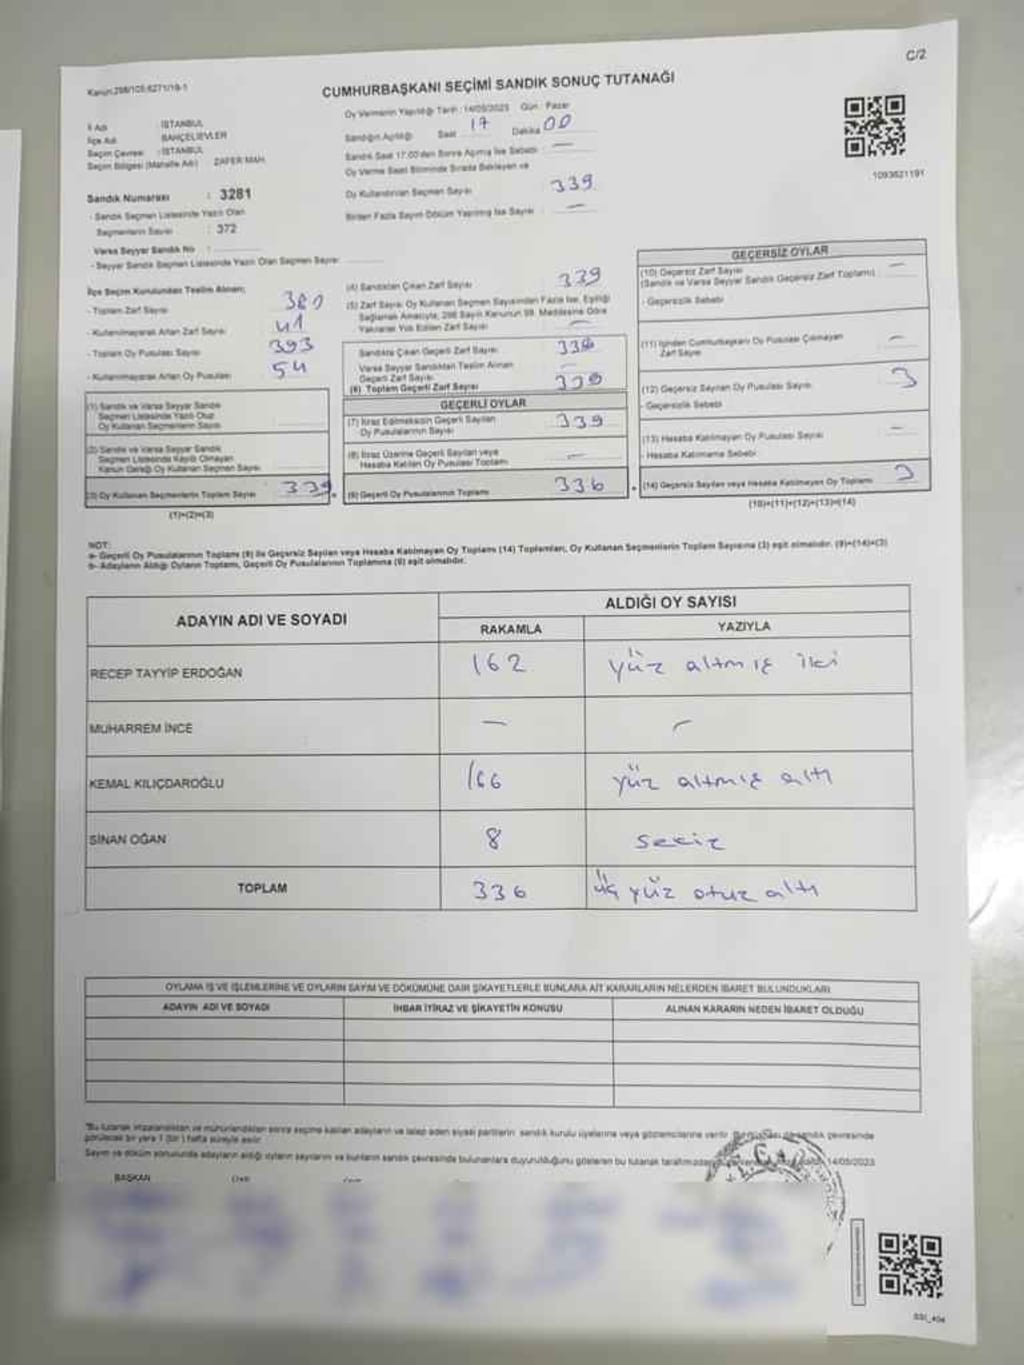 C/2
Kanun:298/105;6271/19-1
CUMHURBAŞKANI SEÇİMİ SANDIK SONUÇ TUTANAĞI
İl Adı : İSTANBUL
İlçe Adı BAHÇELİEVLER
Seçim Çevresi : İSTANBUL
Seçim Bölgesi (Mahalle Adı) ZAFER MAH.
Oy Vermenin Yapıldığı Tarih : 14/05/2023 Gün : Pazar
Sandığın Açıldığı Saat 17 Dakika 00
Sandık Saat 17:00'den Sonra Açılmış İse Sebebi : —
Oy Verme Saati Bitiminde Sırada Bekleyen ve
Oy Kullandırılan Seçmen Sayısı 339
Birden Fazla Sayım Döküm Yapılmış İse Sayısı : —
1093621191
Sandık Numarası : 3281
- Sandık Seçmen Listesinde Yazılı Olan
Seçmenlerin Sayısı : 372
Varsa Seyyar Sandık No :
- Seyyar Sandık Seçmen Listesinde Yazılı Olan Seçmen Sayısı:
İlçe Seçim Kurulundan Teslim Alınan;
- Toplam Zarf Sayısı 380
- Kullanılmayarak Artan Zarf Sayısı 41
- Toplam Oy Pusulası Sayısı 393
- Kullanılmayarak Artan Oy Pusulası 54
(1) Sandık ve Varsa Seyyar Sandık
Seçmen Listesinde Yazılı Olup
Oy Kullanan Seçmenlerin Sayısı
(2) Sandık ve Varsa Seyyar Sandık
Seçmen Listesinde Kaydı Olmayan
Kanun Gereği Oy Kullanan Seçmen Sayısı
(3) Oy Kullanan Seçmenlerin Toplam Sayısı 339
(1)+(2)=(3)
(4) Sandıktan Çıkan Zarf Sayısı 339
(5) Zarf Sayısı Oy Kullanan Seçmen Sayısından Fazla İse, Eşitliği
Sağlamak Amacıyla, 298 Sayılı Kanunun 98. Maddesine Göre
Yakılarak Yok Edilen Zarf Sayısı —
Sandıkta Çıkan Geçerli Zarf Sayısı
Varsa Seyyar Sandıktan Teslim Alınan
Geçerli Zarf Sayısı —
(6) Toplam Geçerli Zarf Sayısı 339
GEÇERLİ OYLAR
(7) İtiraz Edilmeksizin Geçerli Sayılan
Oy Pusulalarının Sayısı 339
(8) İtiraz Üzerine Geçerli Sayılan veya
Hesaba Katılan Oy Pusulası Toplamı —
(9) Geçerli Oy Pusulalarının Toplamı 336
GEÇERSİZ OYLAR
(10) Geçersiz Zarf Sayısı —
(Sandık ve Varsa Seyyar Sandık Geçersiz Zarf Toplamı)
- Geçersizlik Sebebi
(11) İçinden Cumhurbaşkanı Oy Pusulası Çıkmayan —
Zarf Sayısı
(12) Geçersiz Sayılan Oy Pusulası Sayısı 3
- Geçersizlik Sebebi
(13) Hesaba Katılmayan Oy Pusulası Sayısı —
- Hesaba Katılmama Sebebi
(14) Geçersiz Sayılan veya Hesaba Katılmayan Oy Toplamı 3
(10)+(11)+(12)+(13)=(14)
NOT:
a- Geçerli Oy Pusulalarının Toplamı (9) ile Geçersiz Sayılan veya Hesaba Katılmayan Oy Toplamı (14) Toplamları, Oy Kullanan Seçmenlerin Toplam Sayısına (3) eşit olmalıdır. (9)+(14)=(3)
b- Adayların Aldığı Oyların Toplamı, Geçerli Oy Pusulalarının Toplamına (9) eşit olmalıdır.
ADAYIN ADI VE SOYADI ALDIĞI OY SAYISI
RAKAMLA YAZIYLA
RECEP TAYYİP ERDOĞAN 162 yüz altmış iki
MUHARREM İNCE — —
KEMAL KILIÇDAROĞLU 166 yüz altmış altı
SİNAN OĞAN 8 sekiz
TOPLAM 336 üç yüz otuz altı
OYLAMA İŞ VE İŞLEMLERİNE VE OYLARIN SAYIM VE DÖKÜMÜNE DAİR ŞİKAYETLERLE BUNLARA AİT KARARLARIN NELERDEN İBARET BULUNDUKLARI
ADAYIN ADI VE SOYADI İHBAR İTİRAZ VE ŞİKAYETİN KONUSU ALINAN KARARIN NEDEN İBARET OLDUĞU
"Bu tutanak imzalandıktan ve mühürlendikten sonra seçime katılan adayların ve talep eden siyasi partilerin sandık kurulu üyelerine veya gözlemcilerine verilir. sandık çevresinde
görülecek bir yere 1 (bir) hafta süreyle asılır.
Sayım ve döküm sonucunda adayların aldığı oyların sayılarını ve bunların sandık çevresinde bulunanlara duyurulduğunu gösteren bu tutanak 14/05/2023
BAŞKAN
SSI_404